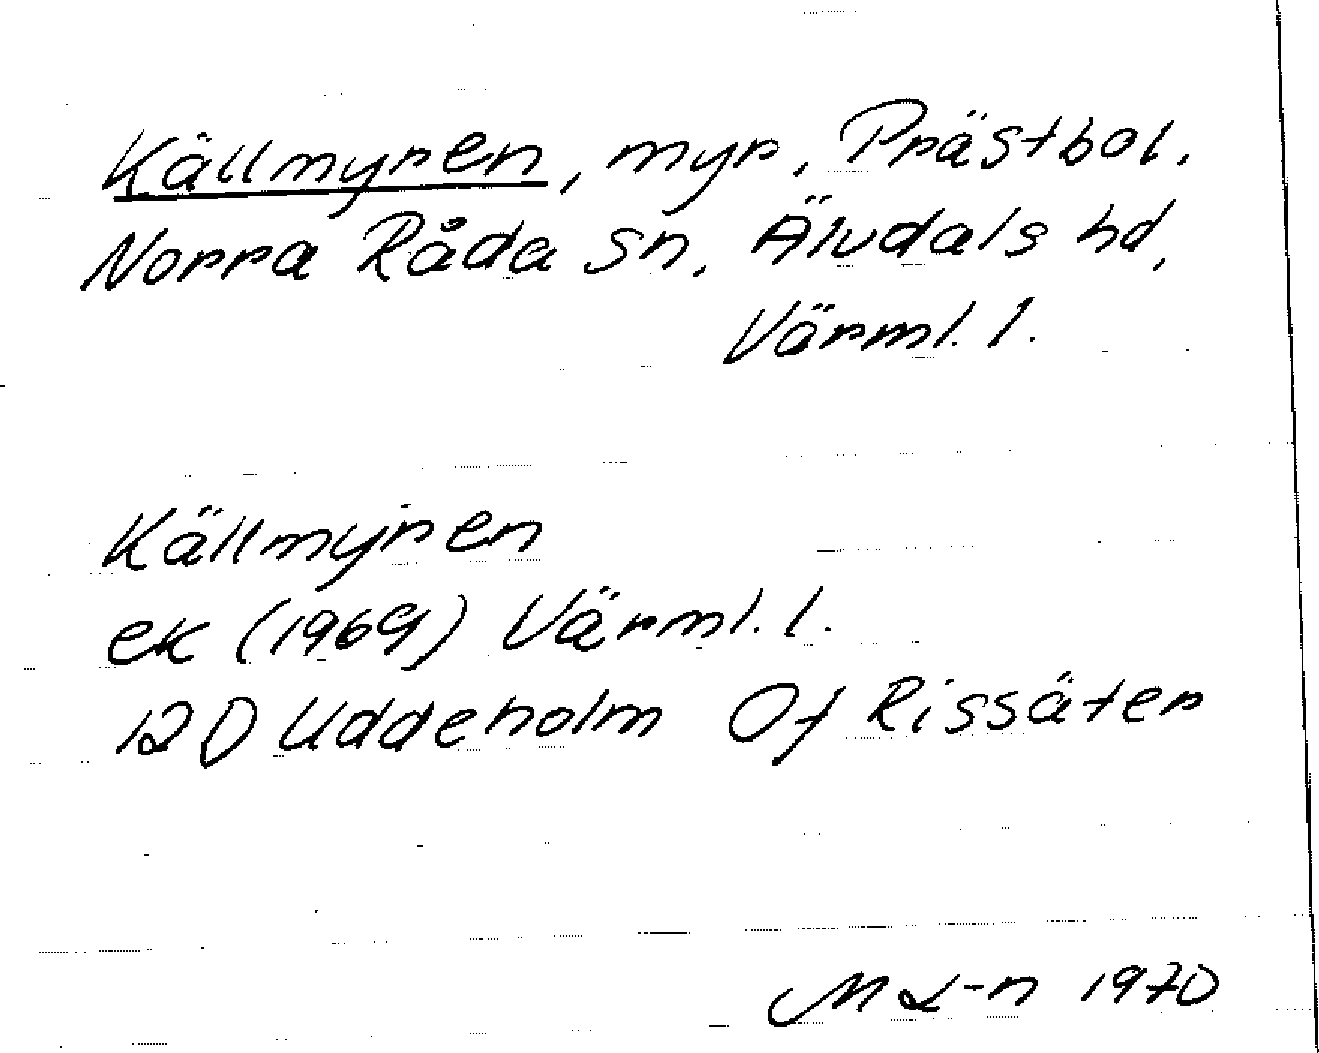 Källmyren, myr, Prästbol.
Norra Råda sn, Älvdals hd,
Värml. l.
Källmyren
ek (1969) Värml. l.
12D Uddeholm Of Rissäter
M L-n 1970